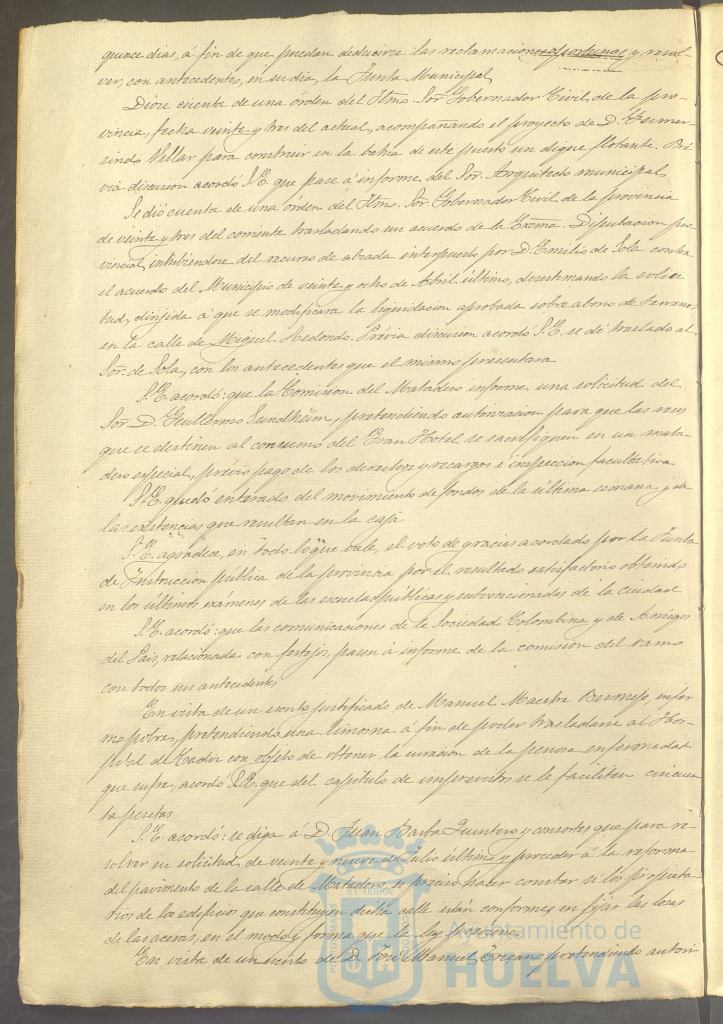 quince dias, á fin de que puedan deducirse las reclamaciones oportunas y resol-
ver, con antecedentes, en su dia, la Junta Municipal,
Dióse cuenta de una órden del Iltmo. Sor. Gobernador Civil de la pro-
vincia, fecha veinte y tres del actual, acompañando el proyecto de D. Gumer-
sindo Villar para construir en la bahia de este puerto un dique flotante. Pré-
via discusion acordó S.E. que pase á informe del Sor. Arquitecto municipal,
Se dió cuenta de una órden del Iltmo. Sor. Gobernador Civil de la provincia
de veinte y tres del corriente trasladando un acuerdo de la Excma. Diputacion pro-
vincial, inhibiendose del recurso de alzada interpuesto por D. Emilio de Sola contra
el acuerdo del Municipio de veinte y ocho de Abril último, desestimando la solici
tud, dirijida á que se modificara la liquidacion aprobada sobre abono de terrenos
en la calle de Miguel Redondo. Prévia discusion acordó S.E. se dé traslado al
Sor. de Sola, con los antecedentes que el mismo presentara
S.E. acordó: que la Comision del Matadero informe una solicitud del
Sor. D. Guillermo Sundheim, pretendiendo autorizacion para que las reses
que se destinen al consumo del Gran Hotel se sacrifiquen en un mata-
dero especial, prévio pago de los derechos y recargos é inspeccion facultativa
S.E. quedó enterado del movimiento de fondos de la última semana y de
las existencias que resultan en la caja
S.E. agradece, en todo lo que vale, el voto de gracias acordado por la Junta
de Instruccion pública de la provincia por el resultado satisfactorio obtenido
en los últimos exámenes de las escuelas públicas y subvencionadas de la ciudad
S.E. acordó: que las comunicaciones de la Sociedad Colombina y de Amigos
del Pais, relacionadas con festejos, pasen á informe de la comision del ramo
con todos sus antecedentes
En vista de un escrito justificado de Manuel Maestre Bermejo, enfer
mo pobre, pretendiendo una limosna á fin de poder trasladarse al Hos-
pital de Cadiz con objeto de obtener la curacion de la penosa enfermedad
que sufre, acordó S.E. que del capítulo de imprevistos se le faciliten cincuen
ta pesetas
S.E. acordó: se diga á D. Juan Barba Quintero y consortes que para re
solver su solicitud de veinte y nueve de Julio último y proceder á la reforma
del pavimento de la calle de Matadero, es preciso hacer constar si los propieta
rios de los edificios que constituyen dicha calle están conformes en fijar las losas
de las aceras, en el modo y forma que la ley previene
En vista de un escrito de D. José Manuel Toscano pretendiendo autori
Ayuntamiento de
HUELVA